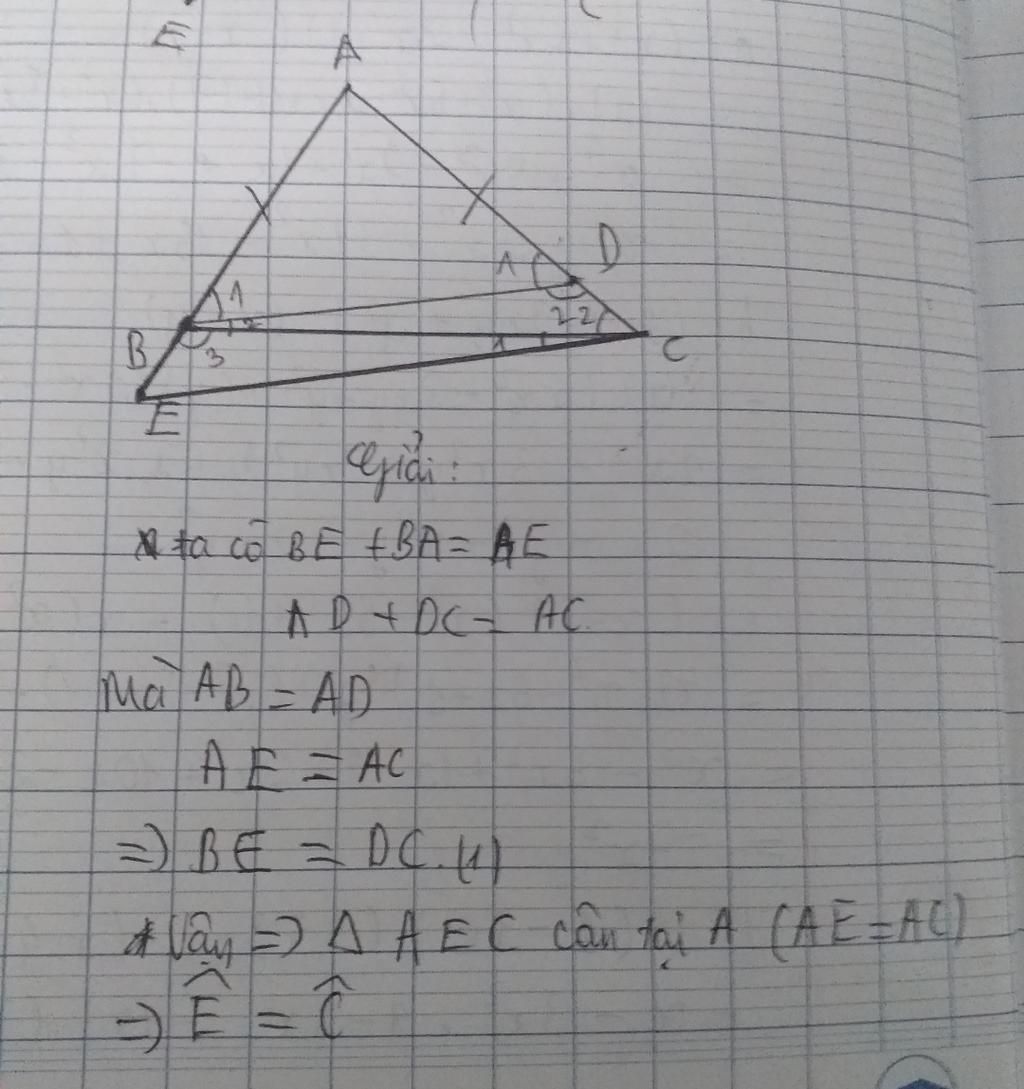 E
A
D
1
1
2
2 2
B
3
1
C
E
Giải:
* ta có BE + BA = AE
AD + DC = AC.
Mà AB = AD
AE = AC
=) BE = DC. (1)
* Vậy =) Δ AEC cân tại A (AE = AC)
=) Ê = Ĉ